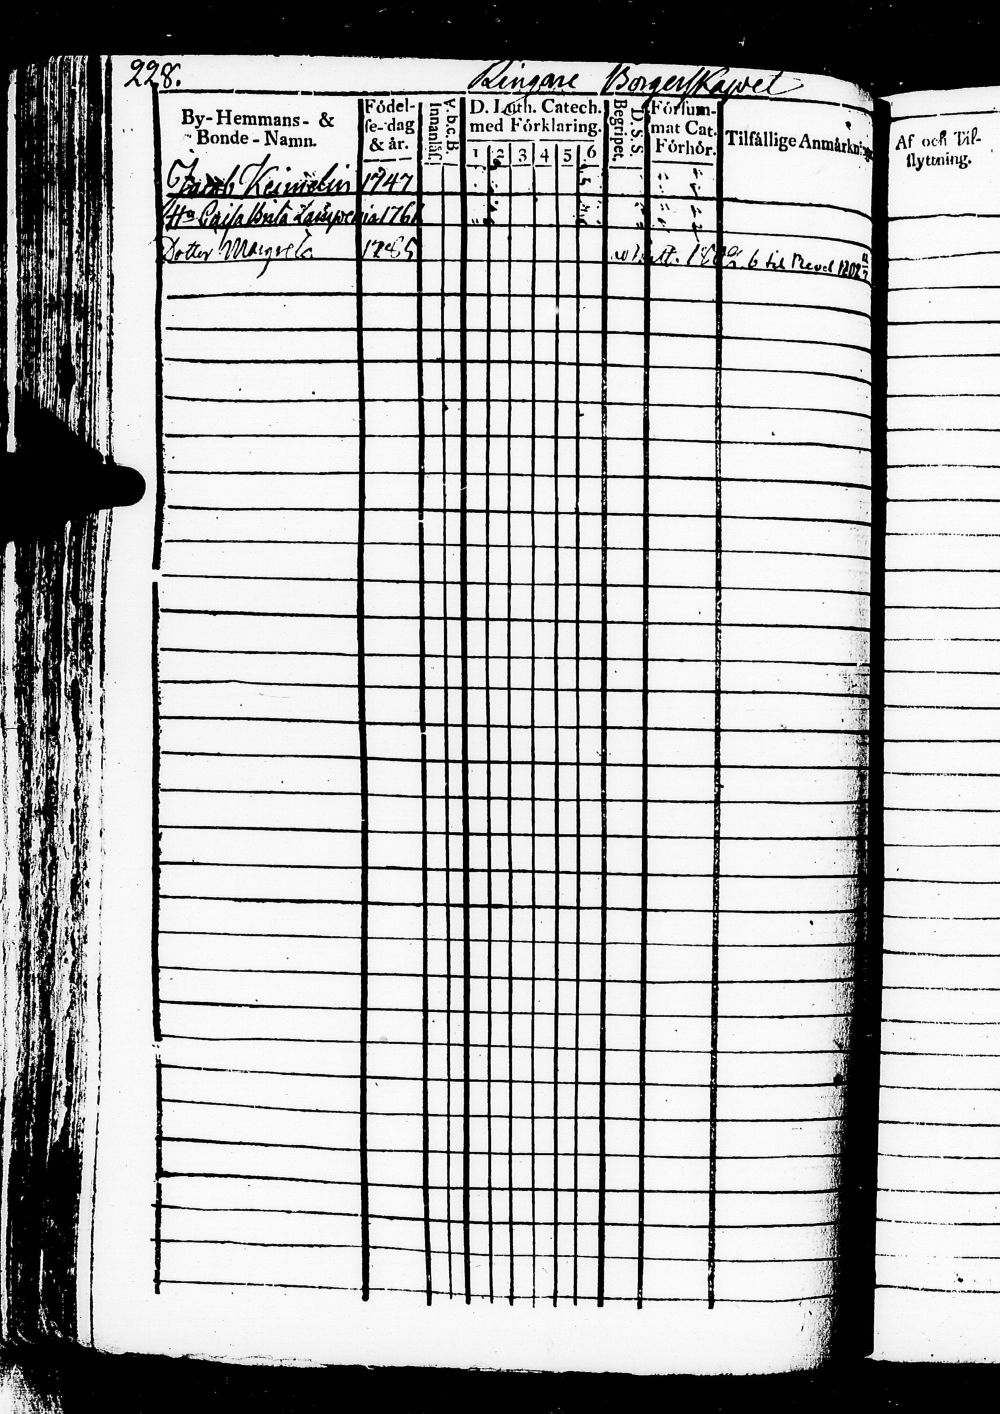 228. Ringare Borgerskapet
By-Hemmans- & Bonde-Namn.
Födel-se-dag & år.
A.b.c.B. Innanläs.
D. Luth. Catech. med Förklaring.
1 2 3 4 5 6
D. S. S. Begripet.
Försum-mat Cat. Förhör.
Tilfällige Anmärkn
Af och Til-flyttning.
Jacob 1747
Hu Caisa Brita 176
Dotter Margreta 1785
6 til Revel 1802